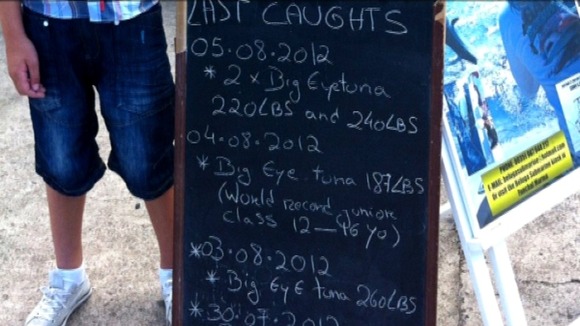 LAST CAUGHTS
05.08.2012
* 2 x Big Eyetuna
220LBS and 240LBS
04.08.2012
* Big Eye tuna 187LBS
(World Record Juniore
class 12-16 yo)
*03.08.2012
* Big EyE tuna 260LBS
*30.07.2012